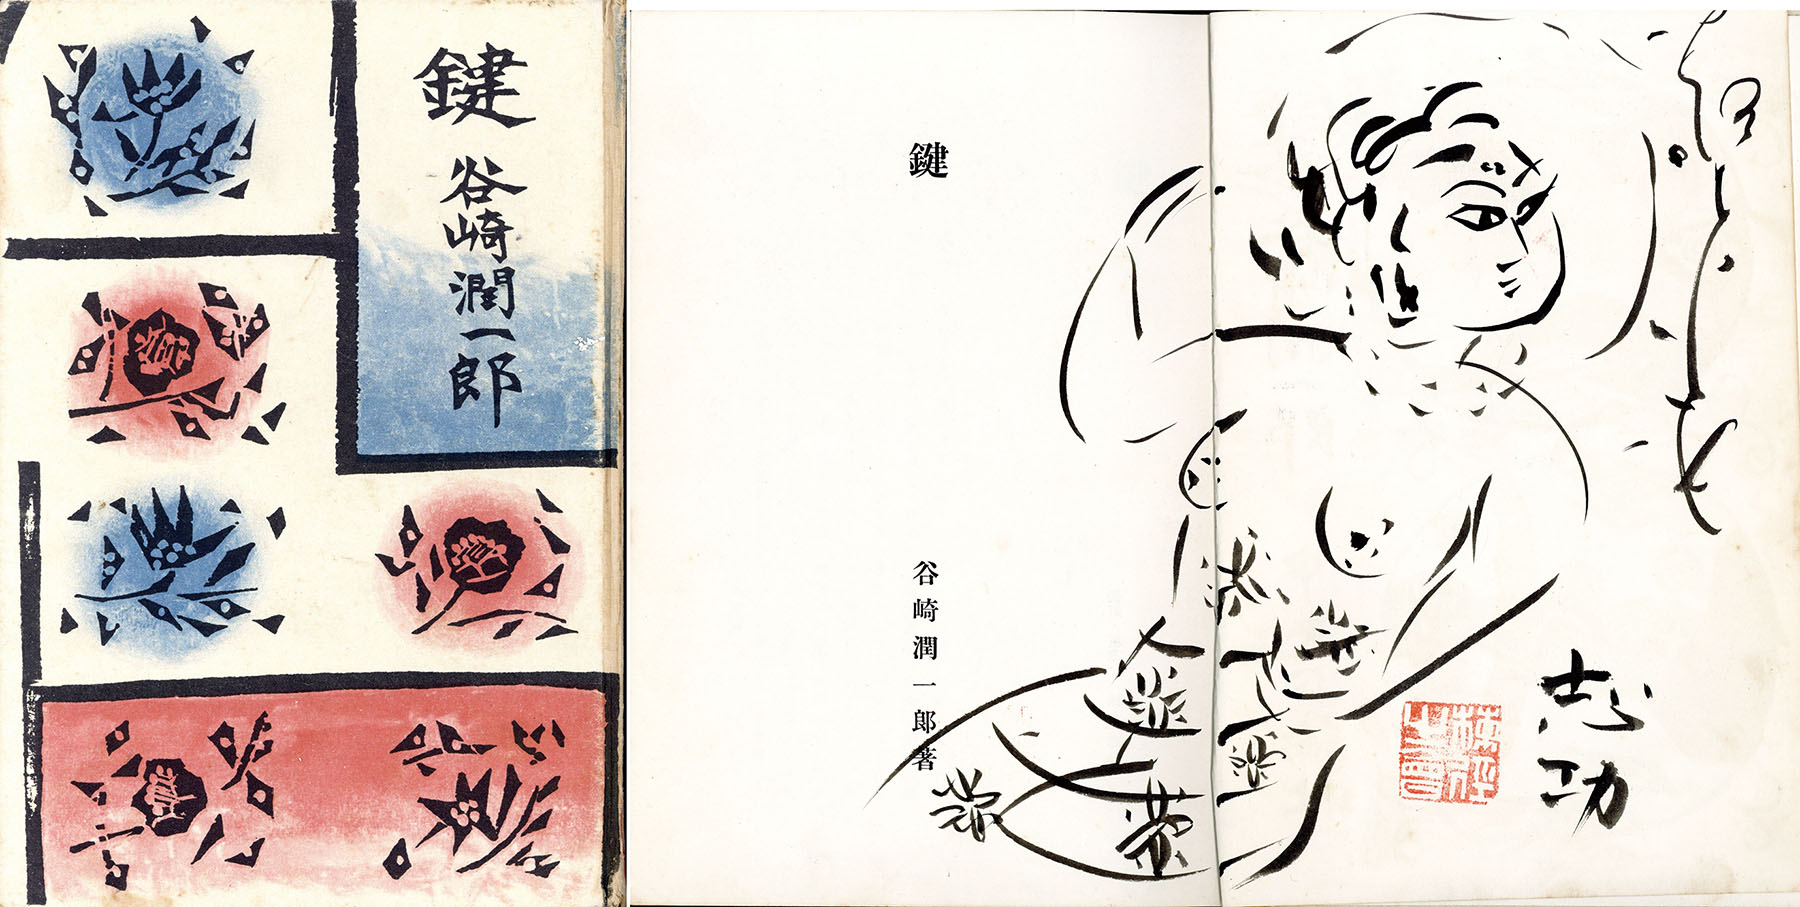 鍵
谷崎潤一郎
鍵
谷崎潤一郎著
志功